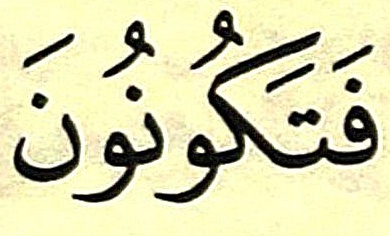 فَتَكُونُونَ